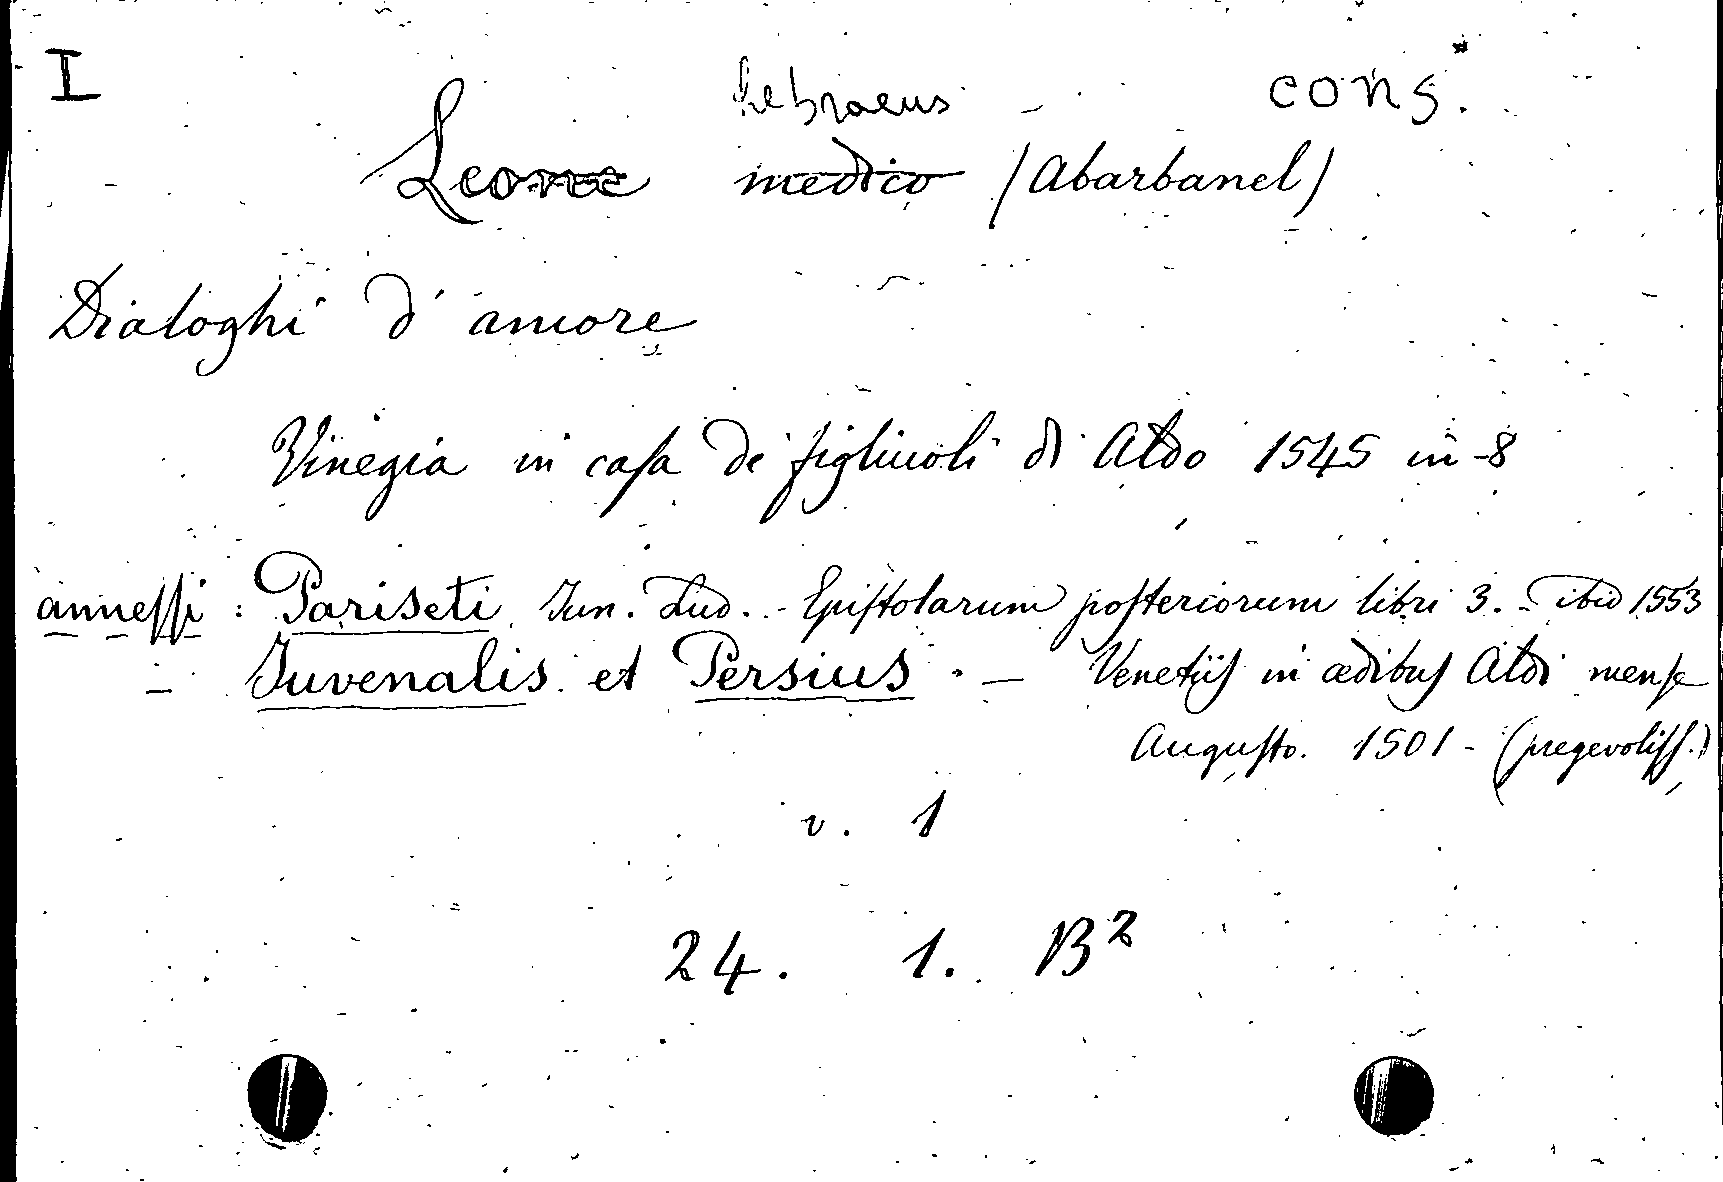 I
hebraeus - cons.
Leone medico (Abarbanel)
Dialoghi d' amore
Vinegia in casa de figliuoli di Aldo 1545 in -8
annessi : Pariseti Iun. Lud. - Epistolarum posteriorum libri 3. - ibid 1553
- Iuvenalis et Persius. - Venetiis in ædibus Aldi mense
Augusto. 1501 - (pregevoliss.)
v. 1
24. 1. B²